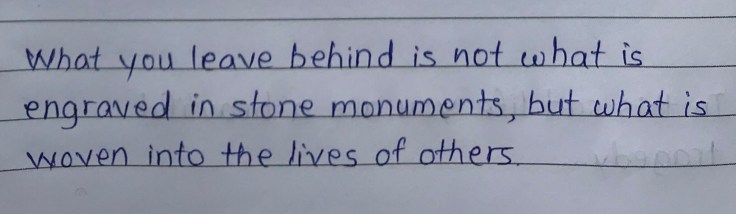 What you leave behind is not what is
engraved in stone monuments, but what is
woven into the lives of others.